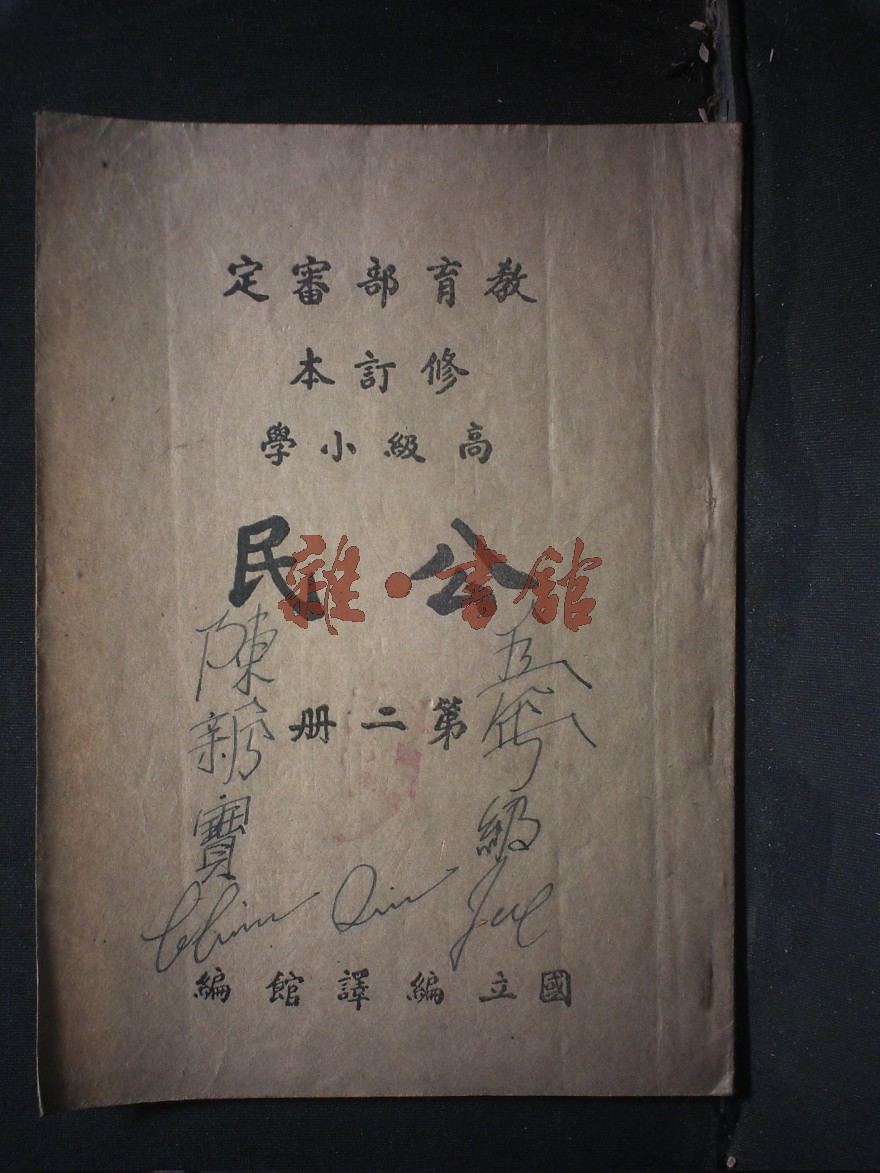 教育部審定
修訂本
高級小學
公民
雜·書館
第二册
五年級
陳
寶
國立編譯館編